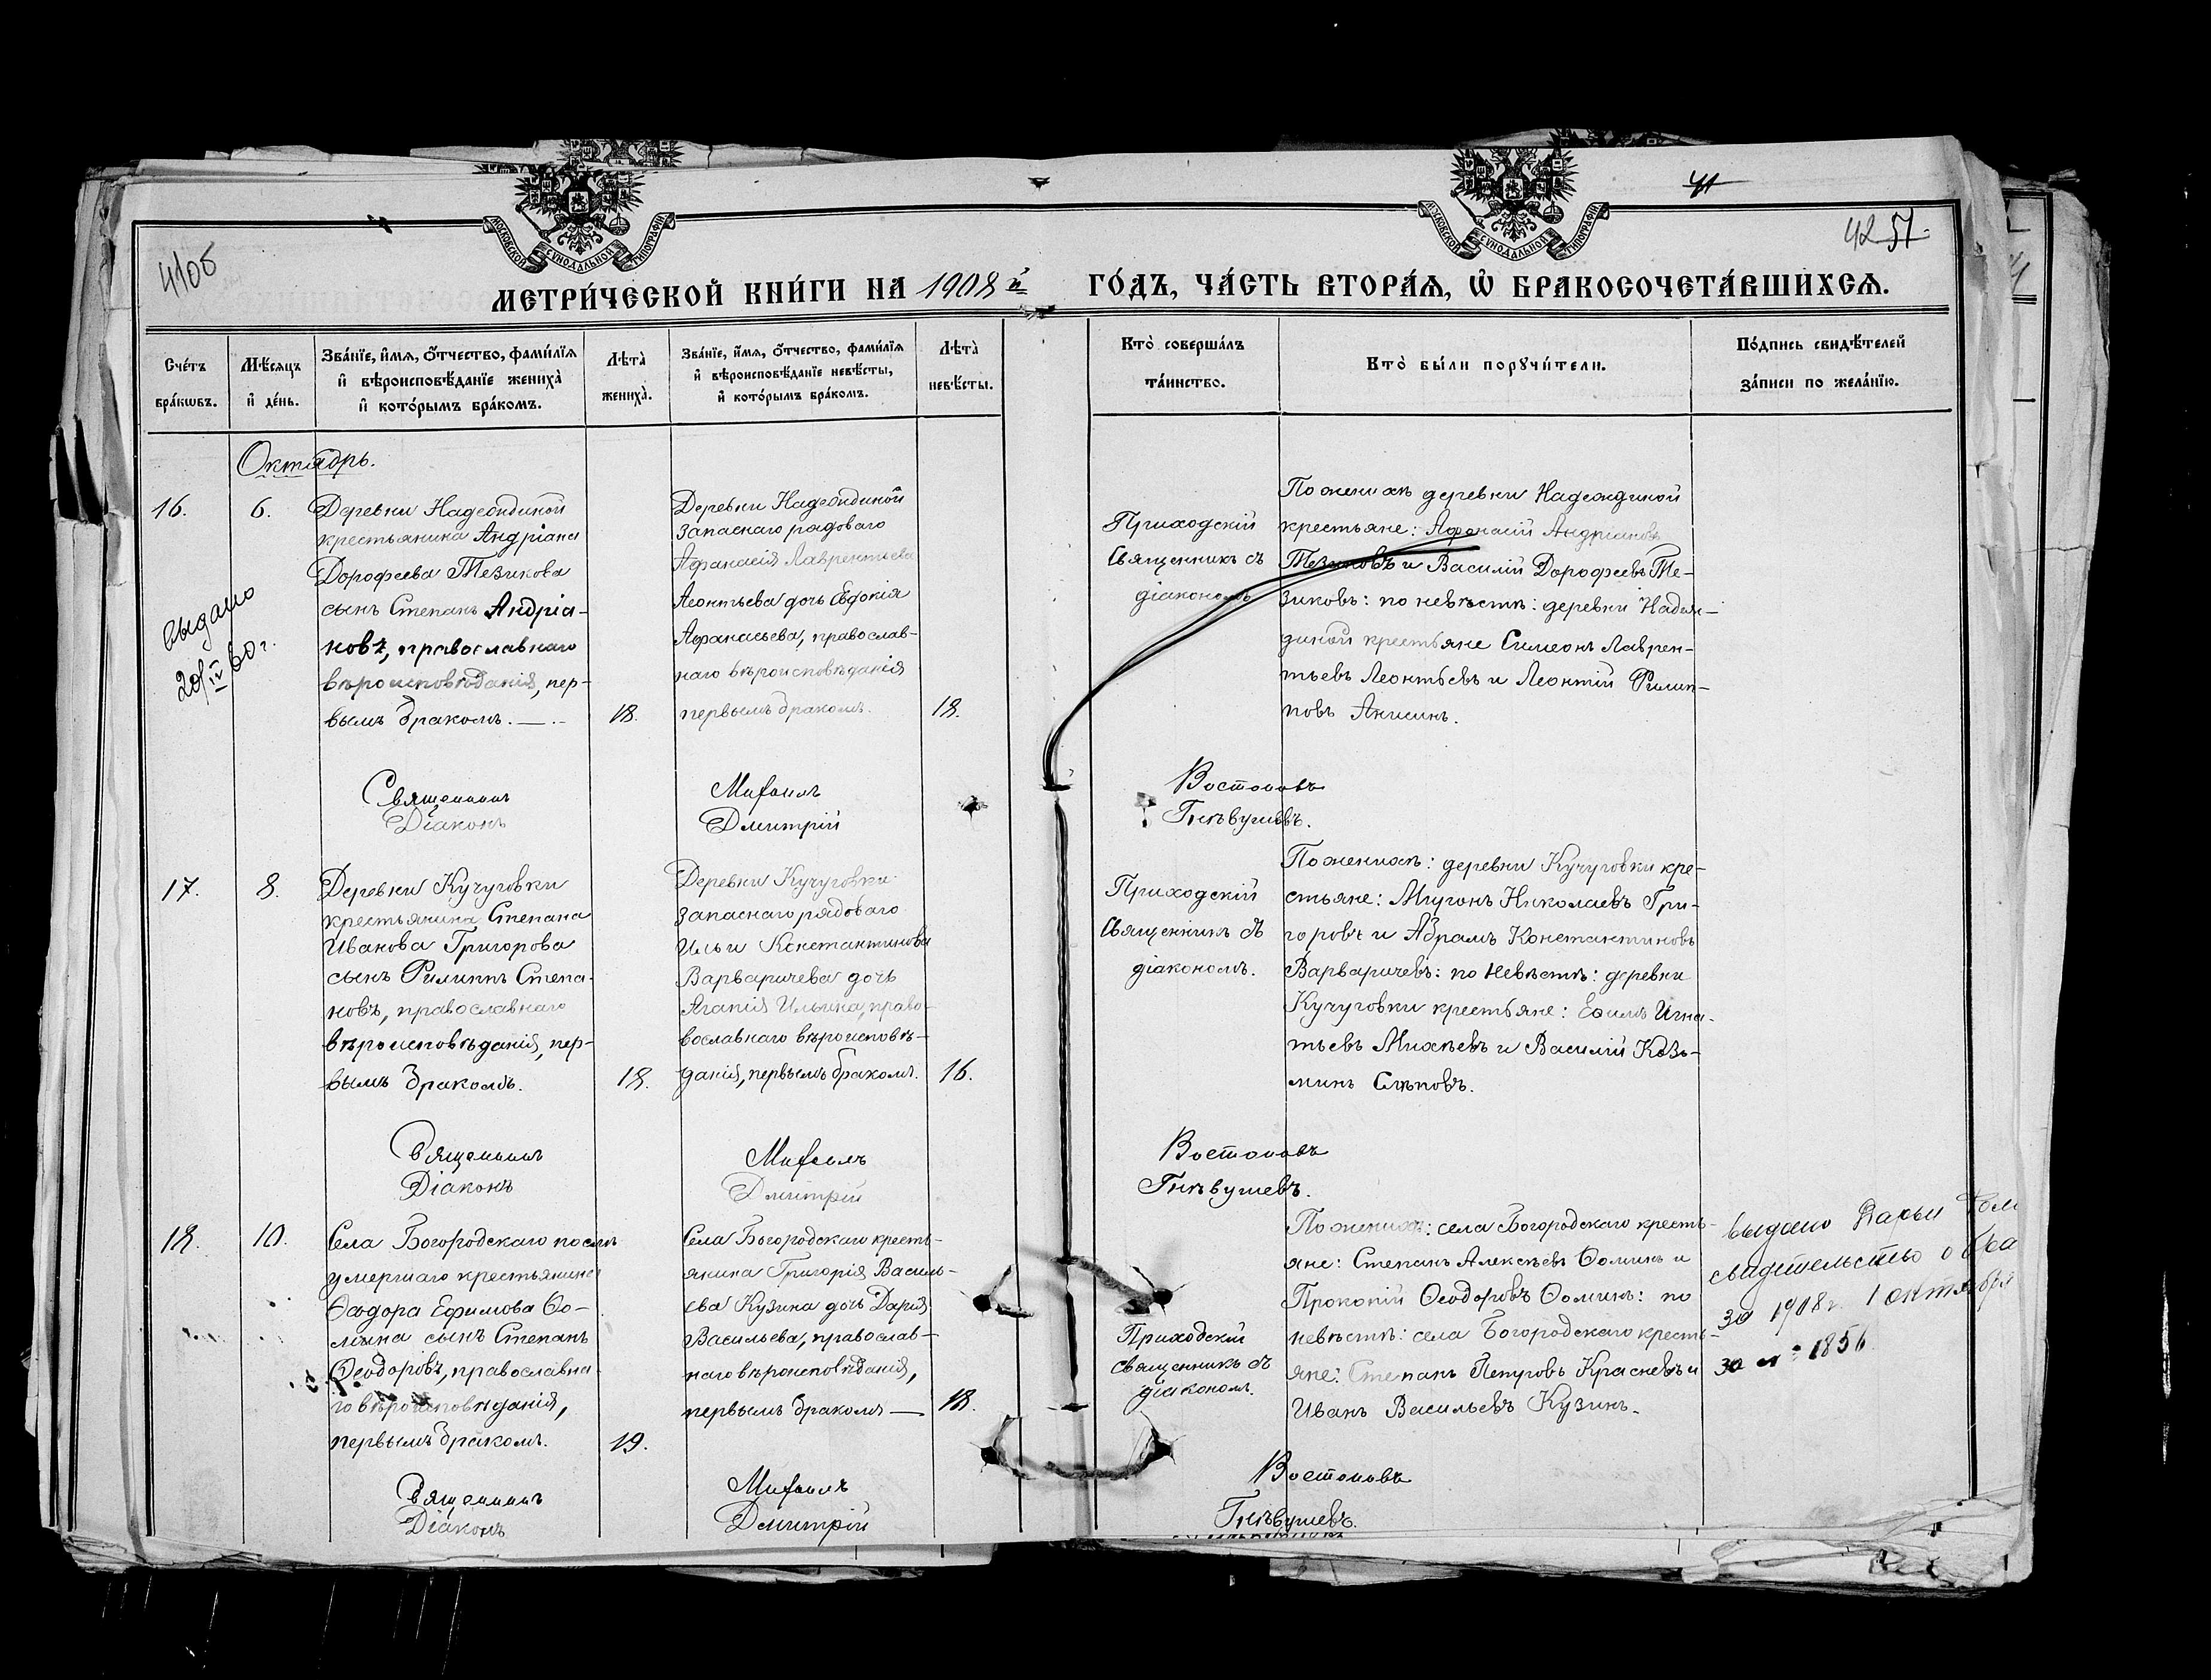 МОСКОВСКОЙ СУНОДАЛЬНОЙ ТИПОГРАФІИ
МОСКОВСКОЙ СУНОДАЛЬНОЙ ТИПОГРАФІИ
41
42 51.
41об
МЕТРИ́ЧЕСКОЙ КНИ́ГИ НА 1908й ГО́ДЪ, ЧА́СТЬ ВТОРА́Ѧ, Ѡ БРАКОСОЧЕТА́ВШИХСѦ.
Сче́тъ бра́кѡвъ.
Мѣ́сяцъ и де́нь.
Зва́нїе, и́мѧ, ѻ́тчество, фами́лїѧ и вѣроисповѣ́данїе жениха̀ и кото́рымъ бра́комъ.
Лѣта̀ жениха̀.
Зва́нїе, и́мѧ, ѻ́тчество, фами́лїѧ и вѣроисповѣ́данїе невѣ́сты, и кото́рымъ бра́комъ.
Лѣта̀ невѣ́сты.
Кто̀ соверша́лъ та́инство.
Кто̀ бы́ли порꙋчи́тели.
По́дпись свидѣ́телей за́писи по жела́нїю.
Октябрь.
16.
6.
выдано
20/IV 60 г.
Деревни Надеждиной
крестьянина Андріана
Дорофеева Тезикова
сынъ Степанъ Андріа-
новъ, православнаго
вѣроисповѣданія, пер-
вымъ бракомъ. —
18.
Деревни Надеждиной
запаснаго рядоваго
Афанасія Лаврентьева
Леонтьева дочь Евдокія
Афанасьева, православ-
наго вѣроисповѣданія
первымъ бракомъ.
18.
Приходскій
Священникъ съ
діакономъ
По женихѣ деревни Надеждиной
крестьяне: Афонасій Андріановъ
Тезиковъ и Василій Дорофеевъ Те-
зиковъ: по невѣстѣ: деревни Надеж-
диной крестьяне Симеонъ Лаврен-
тьевъ Леонтьевъ и Леонтій Филип-
повъ Анисинъ.
Священникъ Михаилъ Востоковъ
Діаконъ Дмитрій Гнѣвушевъ.
17.
8.
Деревни Кучуговки
крестьянина Степана
Иванова Григорова
сынъ Филиппъ Степа-
новъ, православнаго
вѣроисповѣданія, пер-
вымъ бракомъ.
18.
Деревни Кучуговки
запаснаго рядоваго
Ильи Константинова
Варваричева дочь
Агапія Ильина, право-
вославнаго вѣроисповѣ-
данія, первымъ бракомъ.
16.
Приходскій
Священникъ съ
діакономъ.
По женихѣ: деревни Кучуговки кре-
стьяне: Миронъ Николаевъ Гри-
горовъ и Абрамъ Константиновъ
Варваричевъ: по невѣстѣ: деревни
Кучуговки крестьяне: Ефимъ Игна-
тьевъ Михѣевъ и Василій Козь-
минъ Слѣповъ.
Священникъ Михаилъ Востоковъ
Діаконъ Дмитрій Гнѣвушевъ.
18.
10.
Села Богородскаго послѣ
умершаго крестьянина
Ѳеодора Ефимова Ѳо-
мина сынъ Степанъ
Ѳеодоровъ, православна-
го вѣроисповѣданія,
первымъ бракомъ.
19.
Села Богородскаго кресть-
янина Григорія Василь-
ева Кузина дочь Дарія
Васильева, православ-
наго вѣроисповѣданія,
первымъ бракомъ —
18.
Приходскій
священникъ съ
діакономъ.
По женихѣ: села Богородскаго кресть-
яне: Степанъ Алексѣевъ Ѳоминъ и
Прокопій Ѳеодоровъ Ѳоминъ: по
невѣстѣ: села Богородскаго кресть-
яне: Степанъ Петровъ Красневъ и
Иванъ Васильевъ Кузинъ.
выдано Дарьи
свидетельство о бра
за 1908 г. 1 октября
за № 1856
Священникъ Михаилъ Востоковъ
Діаконъ Дмитрій Гнѣвушевъ.